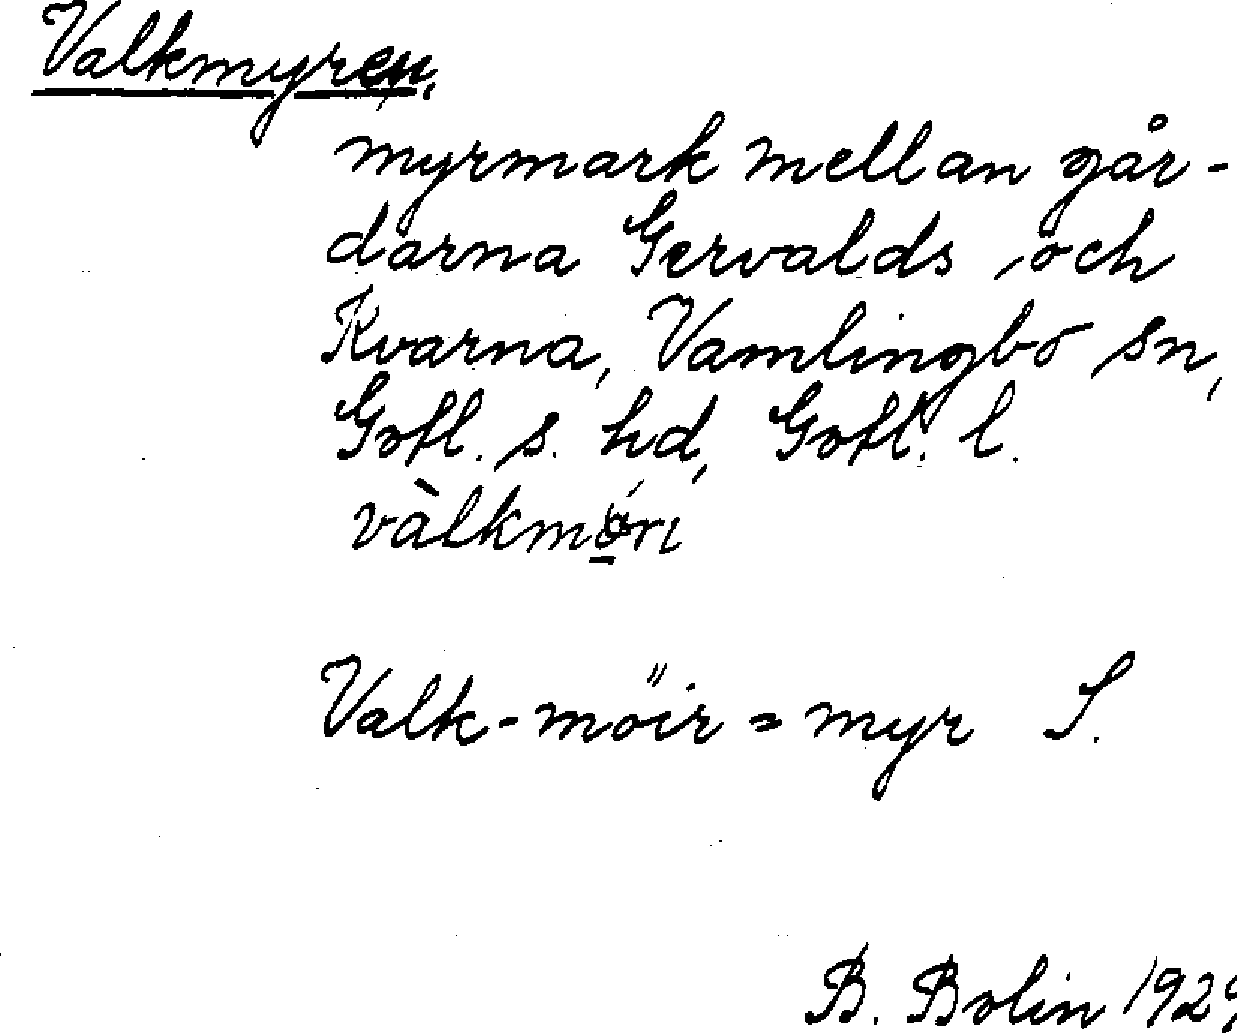 Valkmyren,
myrmark mellan går-
darna Gervalds och
Kvarna, Vamlingbo sn,
Gotl. s. hd, Gotl. l.
Valk-möir = myr S.
B. Bolin